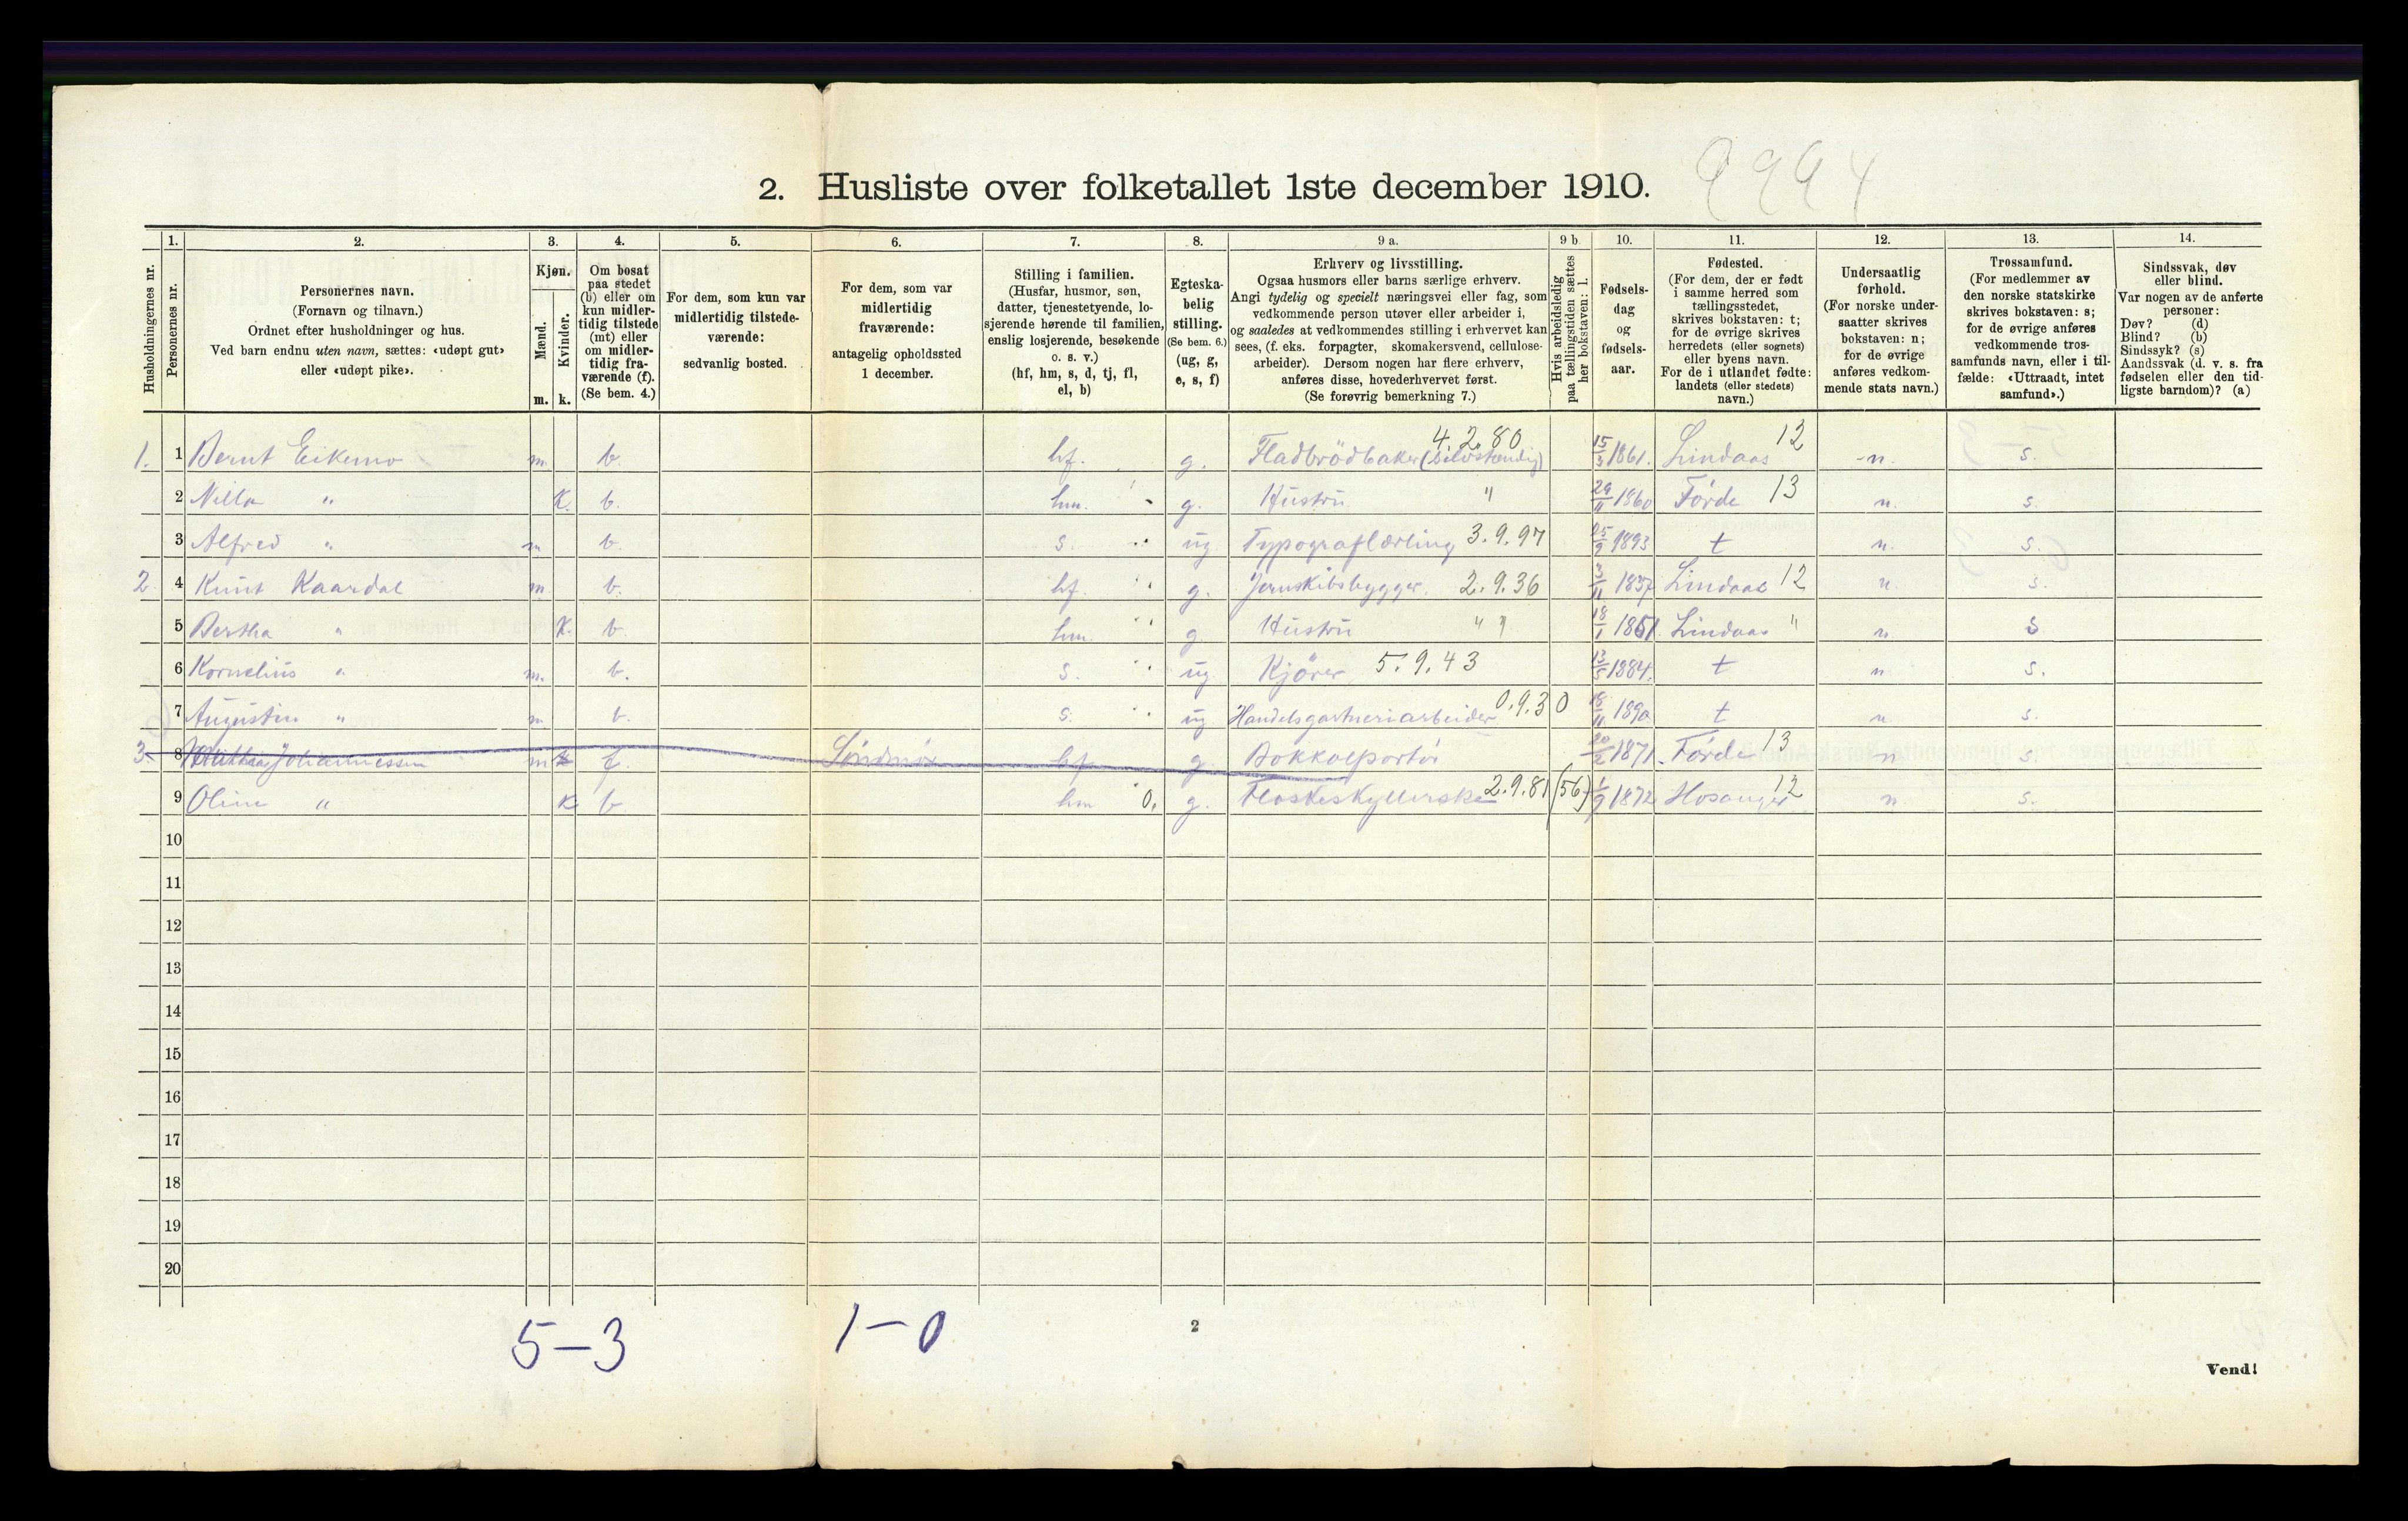 9994
2. Husliste over folketallet 1ste december 1910.
Husholdningernes nr.
1. Personernes nr.
2. Personernes navn.
(Fornavn og tilnavn.)
Ordnet efter husholdninger og hus.
Ved barn endnu uten navn, sættes: «udøpt gut»
eller «udøpt pike».
3. Kjøn.
Mænd. m.
Kvinder. k.
4. Om bosat
paa stedet
(b) eller om
kun midler-
tidig tilstede
(mt) eller
om midler-
tidig fra-
værende (f).
(Se bem. 4.)
5. For dem, som kun var
midlertidig tilstede-
værende:
sedvanlig bosted.
6. For dem, som var
midlertidig
fraværende:
antagelig opholdssted
1 december.
7. Stilling i familien.
(Husfar, husmor, søn,
datter, tjenestetyende, lo-
sjerende hørende til familien,
enslig losjerende, besøkende
o. s. v.)
(hf, hm, s, d, tj, fl,
el, b)
8. Egteska-
belig
stilling.
(Se bem. 6.)
(ug, g,
e, s, f)
9 a. Erhverv og livsstilling.
Ogsaa husmors eller barns særlige erhverv.
Angi tydelig og specielt næringsvei eller fag, som
vedkommende person utøver eller arbeider i,
og saaledes at vedkommendes stilling i erhvervet kan
sees, (f. eks. forpagter, skomakersvend, cellulose-
arbeider). Dersom nogen har flere erhverv,
anføres disse, hovederhvervet først.
(Se forøvrig bemerkning 7.)
9 b. Hvis arbeidsledig
paa tællingstiden sættes
her bokstaven: l.
10. Fødsels-
dag
og
fødsels-
aar.
11. Fødested.
(For dem, der er født
i samme herred som
tællingsstedet,
skrives bokstaven: t;
for de øvrige skrives
herredets (eller sognets)
eller byens navn.
For de i utlandet fødte:
landets (eller stedets)
navn.)
12. Undersaatlig
forhold.
(For norske under-
saatter skrives
bokstaven: n;
for de øvrige
anføres vedkom-
mende stats navn.)
13. Trossamfund.
(For medlemmer av
den norske statskirke
skrives bokstaven: s;
for de øvrige anføres
vedkommende tros-
samfunds navn, eller i til-
fælde: «Uttraadt, intet
samfund».)
14. Sindssvak, døv
eller blind.
Var nogen av de anførte
personer:
Døv? (d)
Blind? (b)
Sindssyk? (s)
Aandssvak (d. v. s. fra
fødselen eller den tid-
ligste barndom)? (a)
1. 1 Bernt Eikemo m. b. hf. g. Fladbrödbaker (selvstændig) 4.2.80 15/3 1861. Lindaas 12 n. s.
2 Nilla " K. b. hm. g. Hustru " 29/11 1860 Förde 13 n. s.
3 Alfred " m b. s. ug. Typograflærling 3.9.97 25/9 1893 t n. s.
2. 4 Knut Kaardal m. b. hf. g. Jernskibsbygger. 2.9.36 3/11 1837 Lindaas 12 n. s.
5 Bertha " K. b. hm. g. Hustru " " 18/1 1851. Lindaas " n s
6 Kornelius " m. b. s. ug. Kjörer 5.9.43 13/5 1884. t n s.
7 Augustin " m b. s. ug Handelsgartneriarbeider 0.9.30 18/11 1890 t n. s.
3. 8 Johannessen m k f. Söndmör hf g. Bokkolportör 20/2 1871. Förde 13 n s
9 Oline " K b. hm 0. g. Flaskeskyllerske 2.9.81 (56) 1/9 1872 Hosanger 12 n. s.
10
11
12
13
14
15
16
17
18
19
20
5–3 1–0
2
Vend!